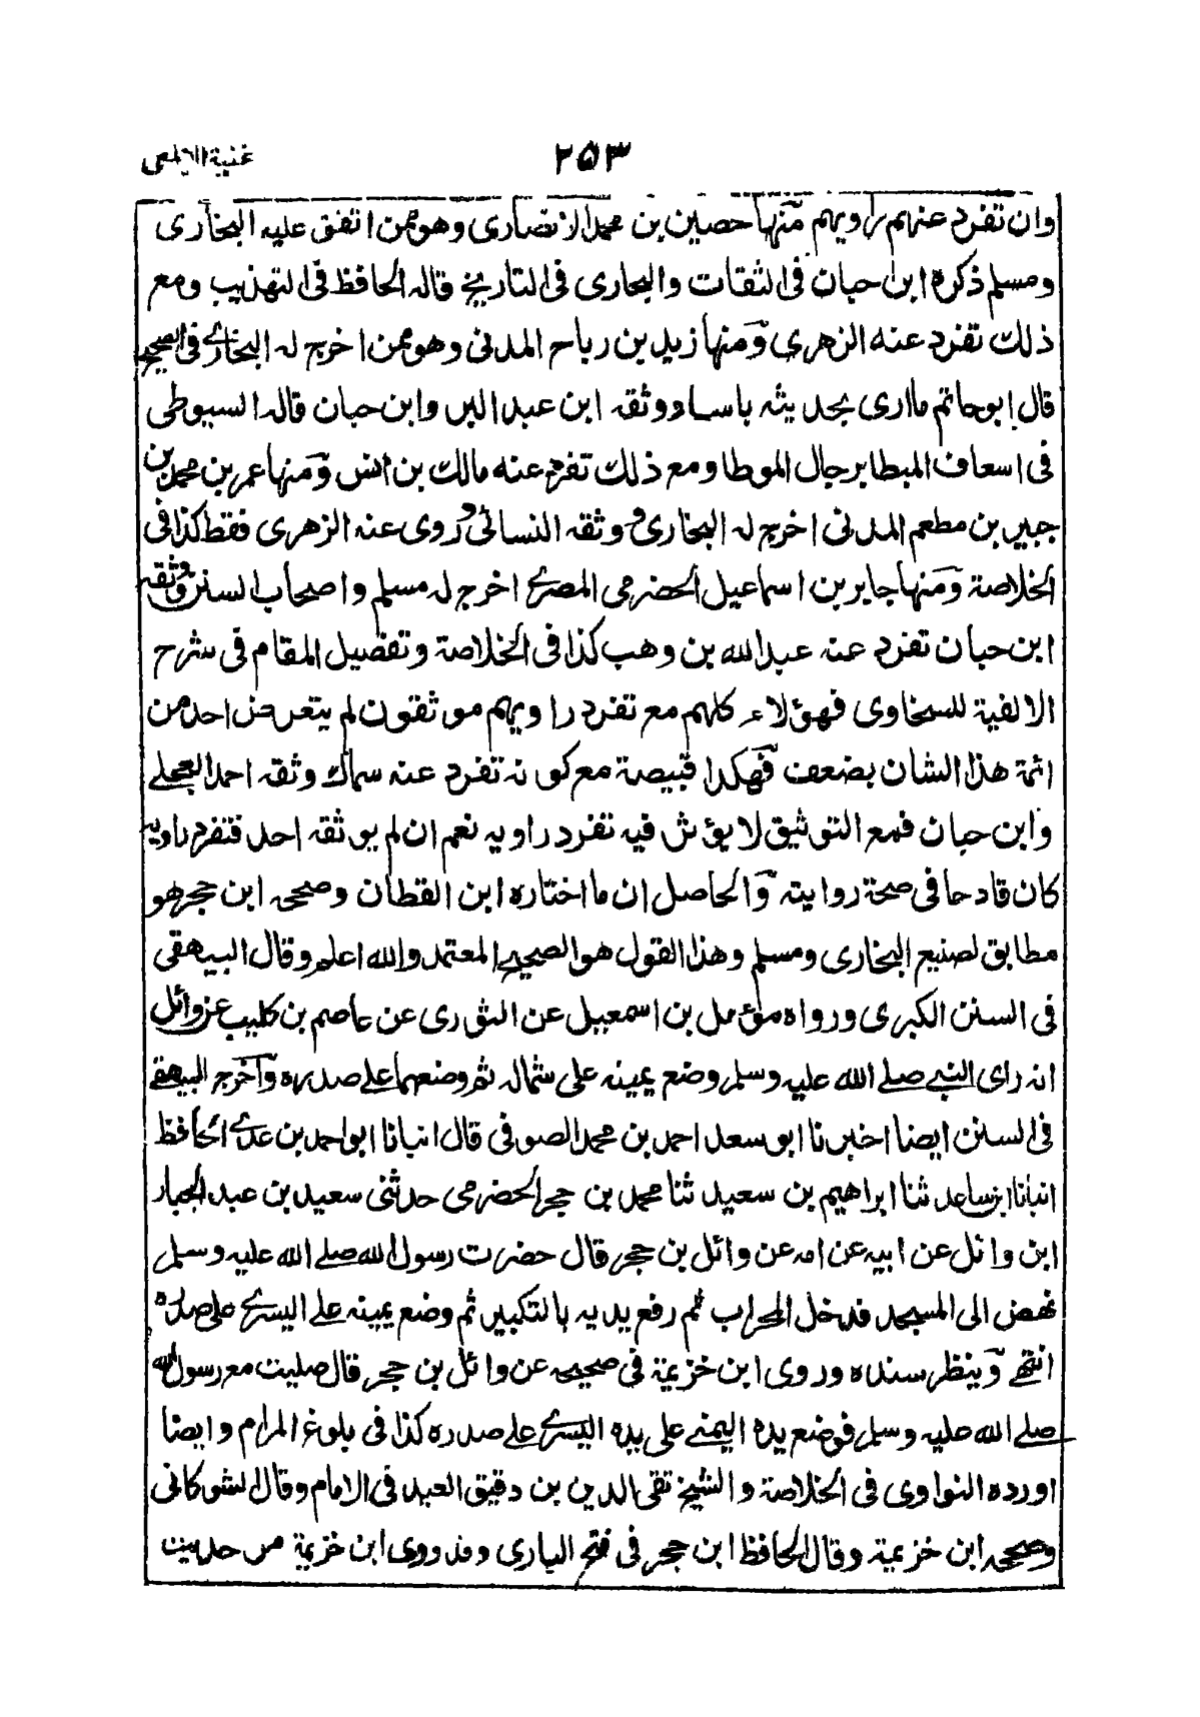 غنية الالمعى
٢٥٣
وان تفرد عنهم راويهم منها حصين بن محمد الانصارى وهو ممن اتفق عليه البخارى
ومسلم ذكره ابن حبان فى الثقات والبخارى فى التاريخ قاله الحافظ فى التهذيب ومع
ذلك تفرد عنه الزهرى ومنها زيد بن رباح المدنى وهو ممن اخرج له البخارى فى الصحيح
قال ابو حاتم ما ارى بحديثه باسا ووثقه ابن عبد البر وابن حبان قاله السيوطى
فى اسعاف المبطا برجال الموطا ومع ذلك تفرد عنه مالك بن انس ومنها عمر بن محمد بن
جبير بن مطعم المدنى اخرج له البخارى ووثقه النسائى وروى عنه الزهرى فقط كذا فى
الخلاصة ومنها جابر بن اسماعيل الحضرمى المصرى اخرج له مسلم واصحاب السنن وثقه
ابن حبان تفرد عنه عبد الله بن وهب كذا فى الخلاصة وتفصيل المقام فى شرح
الالفية للسخاوى فهؤلاء كلهم مع تفرد راويهم موثقون لم يتعرض احد من
ائمة هذا الشان بضعف فهكذا قبيصة مع كونه تفرد عنه سماك وثقه احمد العجلى
وابن حبان فمع التوثيق لا يؤثر فيه تفرد راويه نعم ان لم يوثقه احد فتفرد راويه
كان قادحا فى صحة روايته والحاصل ان ما اختاره ابن القطان وصححه ابن حجر هو
مطابق لصنيع البخارى ومسلم وهذا القول هو الصحيح المعتمد والله اعلم وقال البيهقى
فى السنن الكبرى ورواه مؤمل بن اسمعيل عن الثورى عن عاصم بن كليب عن وائل
انه راى النبى صلى الله عليه وسلم وضع يمينه على شماله ثم وضعهما على صدره واخرج البيهقى
فى السنن ايضا اخبرنا ابو سعد احمد بن محمد الصوفى قال انبانا ابو احمد بن عدى الحافظ
انبانا ابن ساعد ثنا ابراهيم بن سعيد ثنا محمد بن حجر الحضرمى حدثنى سعيد بن عبد الجبار
ابن وائل عن ابيه عن امه عن وائل بن حجر قال حضرت رسول الله صلى الله عليه وسلم
نهض الى المسجد فدخل المحراب ثم رفع يديه بالتكبير ثم وضع يمينه على اليسرى على صدره
انتهى وينظر سنده وروى ابن خزيمة فى صحيحه عن وائل بن حجر قال صليت مع رسول الله
صلى الله عليه وسلم فوضع يده اليمنى على يده اليسرى على صدره كذا فى بلوغ المرام وايضا
اورده النواوى فى الخلاصة والشيخ تقى الدين بن دقيق العيد فى الامام وقال الشوكانى
وصححه ابن خزيمة وقال الحافظ ابن حجر فى فتح البارى وقد روى ابن خزيمة من حديث